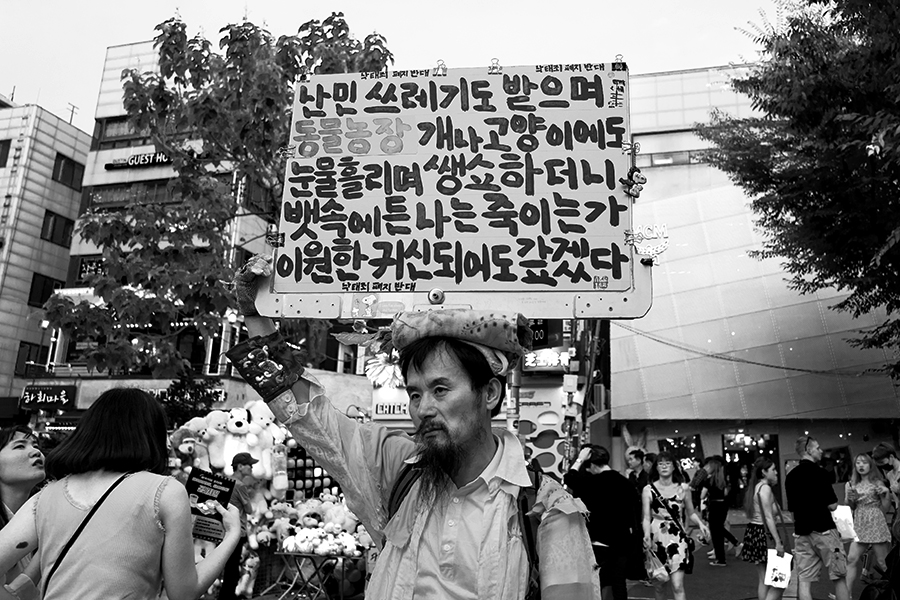 낙태죄 폐지 반대
낙태죄 폐지 반대
난민 쓰레기도 받으며
동물농장 개나 고양이에도
눈물흘리며 쌩쇼하더니
뱃속에든 나는 죽이는가
이원한 귀신되어도 갚겠다
낙태죄 폐지 반대
GUEST HO
하회마을
CATCH